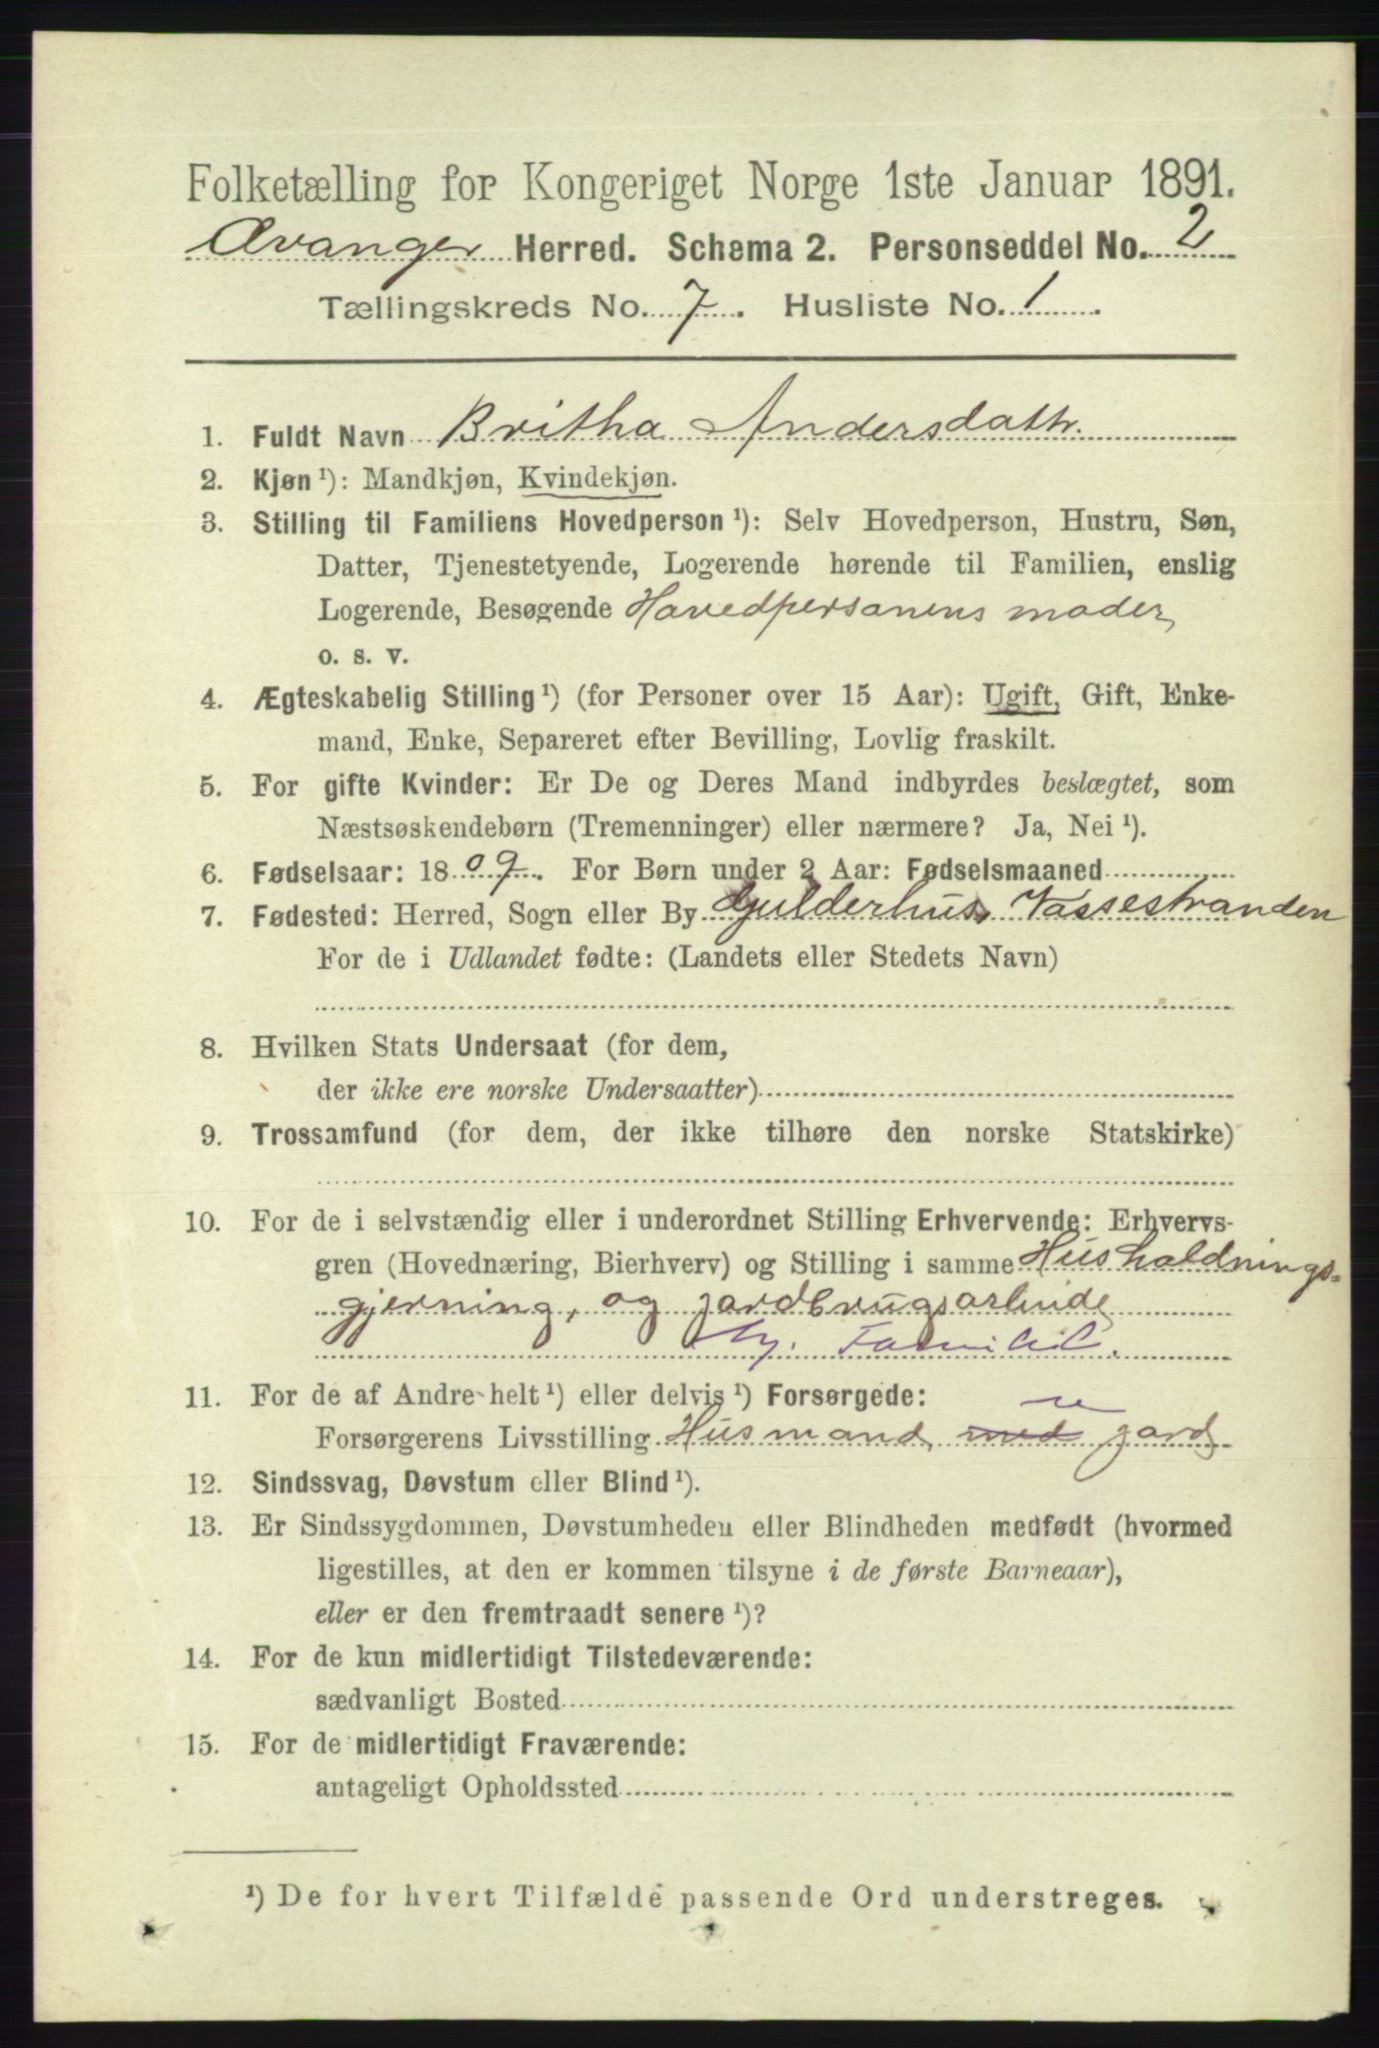 Folketælling for Kongeriget Norge 1ste Januar 1891.
Evanger Herred. Schema 2. Personseddel No. 2
Tællingskreds No. 7. Husliste No. 1.
1. Fuldt Navn Britha Andersdattr.
2. Kjøn ¹): Mandkjøn, Kvindekjøn.
3. Stilling til Familiens Hovedperson ¹): Selv Hovedperson, Hustru, Søn,
Datter, Tjenestetyende, Logerende hørende til Familien, enslig
Logerende, Besøgende Hovedpersonens moder
o. s. v.
4. Ægteskabelig Stilling ¹) (for Personer over 15 Aar): Ugift, Gift, Enke-
mand, Enke, Separeret efter Bevilling, Lovlig fraskilt.
5. For gifte Kvinder: Er De og Deres Mand indbyrdes beslægtet, som
Næstsøskendebørn (Tremenninger) eller nærmere? Ja, Nei ¹).
6. Fødselsaar: 1809. For Børn under 2 Aar: Fødselsmaaned
7. Fødested: Herred, Sogn eller By Gjulderhus Vassestranden
For de i Udlandet fødte: (Landets eller Stedets Navn)
8. Hvilken Stats Undersaat (for dem,
der ikke ere norske Undersaatter)
9. Trossamfund (for dem, der ikke tilhøre den norske Statskirke)
10. For de i selvstændig eller i underordnet Stilling Erhvervende: Erhvervs-
gren (Hovednæring, Bierhverv) og Stilling i samme Husholdnings-
gjerning, og jordbrugsarbeide
11. For de af Andre helt ¹) eller delvis ¹) Forsørgede:
Forsørgerens Livsstilling Husmand med jord
12. Sindssvag, Døvstum eller Blind ¹).
13. Er Sindssygdommen, Døvstumheden eller Blindheden medfødt (hvormed
ligestilles, at den er kommen tilsyne i de første Barneaar),
eller er den fremtraadt senere ¹)?
14. For de kun midlertidigt Tilstedeværende:
sædvanligt Bosted
15. For de midlertidigt Fraværende:
antageligt Opholdssted
¹) De for hvert Tilfælde passende Ord understreges.